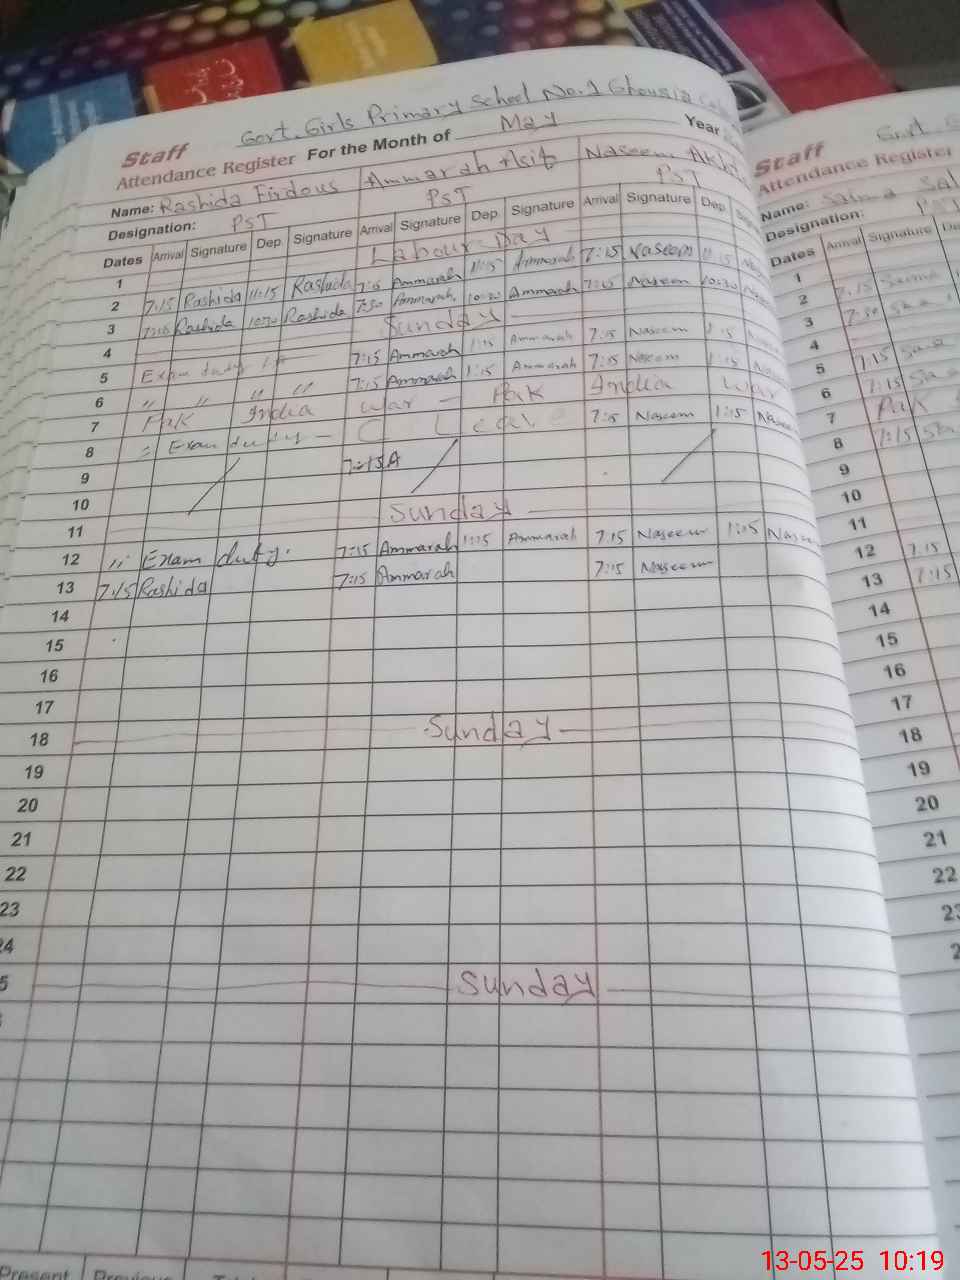 Govt. Girls Primary School No. 1 Ghousia
Staff
Attendance Register For the Month of May Year
Name: Rashida Firdous Ammarah Asif Naseem
Designation: PST PST PST
Dates Arrival Signature Dep. Signature Arrival Signature Dep. Signature Arrival Signature Dep.
1 Labour Day
2 7:15 Rashida 11:15 Rashida 7:15 Ammarah 11:15 Ammarah 7:15 Naseem 11:15
3 7:15 Rashida 10:30 Rashida 7:30 Ammarah 10:30 Ammarah 7:15 Naseem 10:30
4 Sunday
5 Exam duty 7:15 Ammarah 1:15 Ammarah 7:15 Naseem 1:15
6 " " " " 7:15 Ammarah 1:15 Ammarah 7:15 Naseem 1:15
7 Pak India war - Pak India war
8 = Exam duty - C Leave 7:15 Naseem 1:15
9 7:15 A
10
11 Sunday
12 Exam duty. 7:15 Ammarah 1:15 Ammarah 7:15 Naseem 1:15
13 7:15 Rashida 7:15 Ammarah 7:15 Naseem
14
15
16
17
18 Sunday
19
20
21
22
23
24
5 Sunday
Present
Staff
Attendance Register
Name: Saima
Designation:
Dates Arrival Signature
1
2 7:15 Saima
3 7:30
4
5 7:15
6 7:15
7 Pak
8 7:15
9
10
11
12 7:15
13 7:15
14
15
16
17
18
19
20
21
22
23
2
13-05-25 10:19